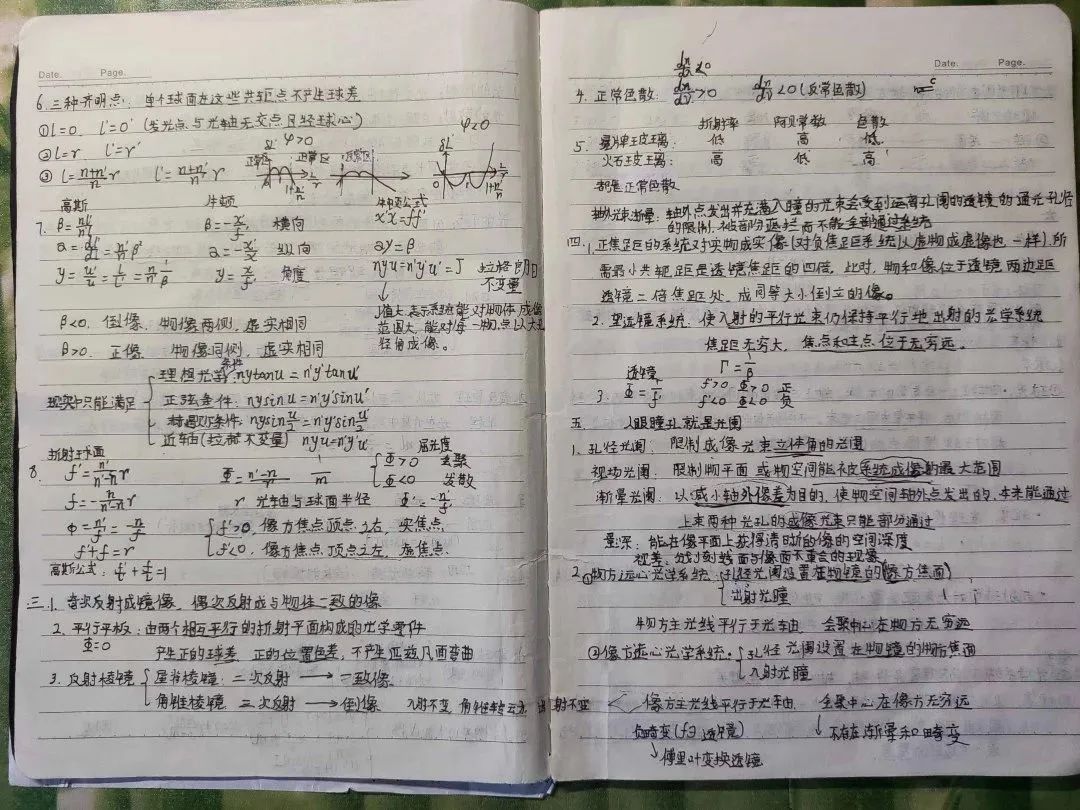 Date.  Page.
6. 三种齐明点: 单个球面在这些共轭点不产生球差
① l=0, l'=0 (发光点与光轴无交点且经球心)
② l=r  l'=r  δL' φ>0  φ<0
正常区  正常区  δL'
③ l=(n+n')/n r  l'=(n+n')/n' r
高斯  牛顿  牛顿公式
7. β=nl'/n'l  β=-x'/f'  横向  x'x=ff'
α=dl'/dl=n'/n β²  α=-x'/x  纵向  αγ=β
γ=u'/u=l/l'=n/n' 1/β  γ=x/f'  角度  nyu=n'y'u'=J  拉格朗日不变量
β<0, 倒像, 物像两侧, 虚实相同
J值大,表示系统能对物体成像范围大,能对每一物点以大孔径角成像。
β>0, 正像, 物像同侧, 虚实相反
现实中只能满足
理想光学条件: nytanu=n'y'tanu'
正弦条件: nysinu=n'y'sinu'
赫歇尔条件: nysin u/2=n'y'sin u'/2
近轴(拉赫不变量) nyu=n'y'u'
折射球面
8. f'=n'/(n'-n) r  Φ=(n'-n)/r  1/m  屈光度  Φ>0 会聚  Φ<0 发散
f=-n/(n'-n) r  r 光轴与球面半径
Φ=n'/f'=-n/f  f'>0, 像方焦点顶点之右 实焦点
f'+f=r  f'<0, 像方焦点顶点之左, 虚焦点.
高斯公式: f'/l'+f/l=1
三. 1. 奇次反射成镜像, 偶次反射成与物体一致的像
2. 平行平板: 由两个相互平行的折射平面构成的光学零件
Φ=0  产生正的球差 正的位置色差, 不产生匹兹凡面弯曲
3. 反射棱镜
屋脊棱镜: 二次反射 → 一致像.
角锥棱镜: 三次反射 → 倒像
Date.  Page.
dn/dλ<0
4. 正常色散: dn/dλ>0  dn/dλ<0 (反常色散)
折射率  阿贝常数  色散
5. 冕牌玻璃: 低 高 低.
火石玻璃: 高 低 高
都是正常色散
轴外光束渐晕: 轴外点发出并充满入瞳的光束会受到远离孔阑的透镜的通光孔径的限制, 被部分遮拦而不能全部通过系统
四. 1. 正焦距的系统对实物成实像(对负焦距系统以虚物成虚像也一样)所
需最小共轭距是透镜焦距的四倍, 此时, 物和像位于透镜两边距
透镜二倍焦距处, 成同等大小倒立的像。
2. 望远镜系统: 使入射的平行光束仍保持平行地出射的光学系统
焦距无穷大, 焦点和主点位于无穷远。
Γ=1/β
透镜
3. Φ=1/f'  f'>0 Φ>0 正
f'<0 Φ<0 负
五  人眼瞳孔就是光阑
1. 孔径光阑: 限制成像光束立体角的光阑
视场光阑: 限制物平面或物空间能被系统成像的最大范围
渐晕光阑: 以减小轴外像差为目的, 使物空间轴外点发出的, 本来能通过
上束两种光孔的成像光束只能部分通过
景深: 能在像平面上获得清晰的像的空间深度
视差: 分划刻线面与像面不重合的现象
2. ①物方远心光学系统: 孔径光阑设置在物镜的(像方焦面)
出射光瞳
物方主光线平行于光轴  会聚中心在物方无穷远
②像方远心光学系统: 孔径光阑设置在物镜的物方焦面
入射光瞳
像方主光线平行于光轴  会聚中心在像方无穷远
负畸变(fθ透镜)  不存在渐晕和畸变
傅里叶变换透镜